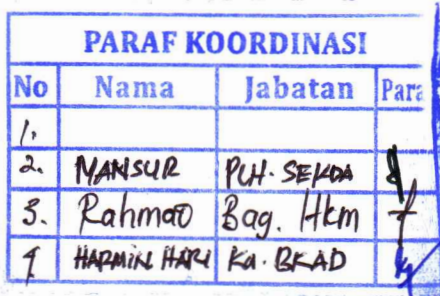 PARAF KOORDINASI
No Nama Jabatan Para
1.
2. MANSUR PLH. SEKDA
3. Rahmad Bag. Hkm
4 HARMIN HARI Ka. BKAD